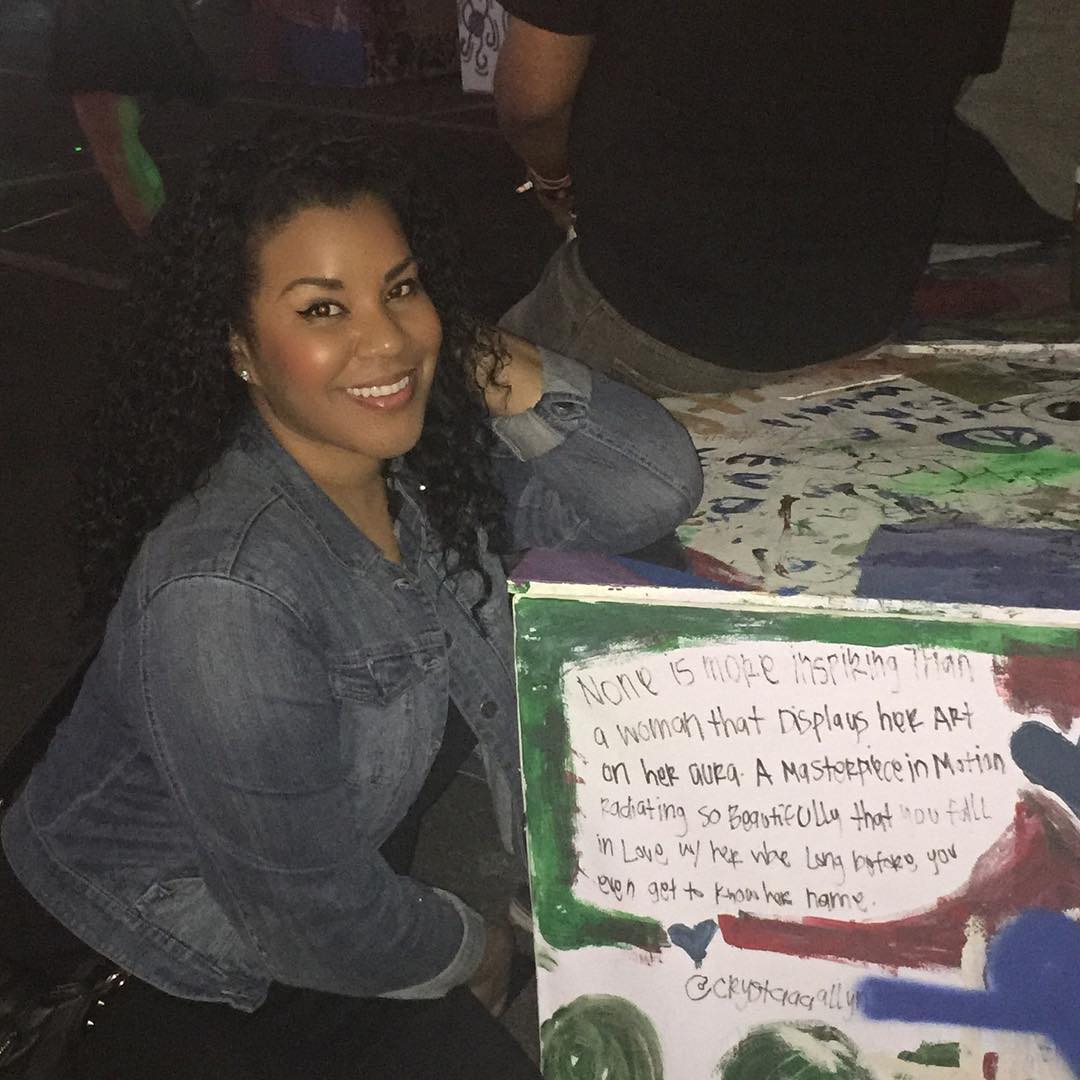 None is more inspiring Than
a woman that Displays her Art
on her aura. A Masterpiece in Motion
Radiating so Beautifully that you fall
in Love w/ her vibe Long before you
even get to know her name.
@crystaaallyn